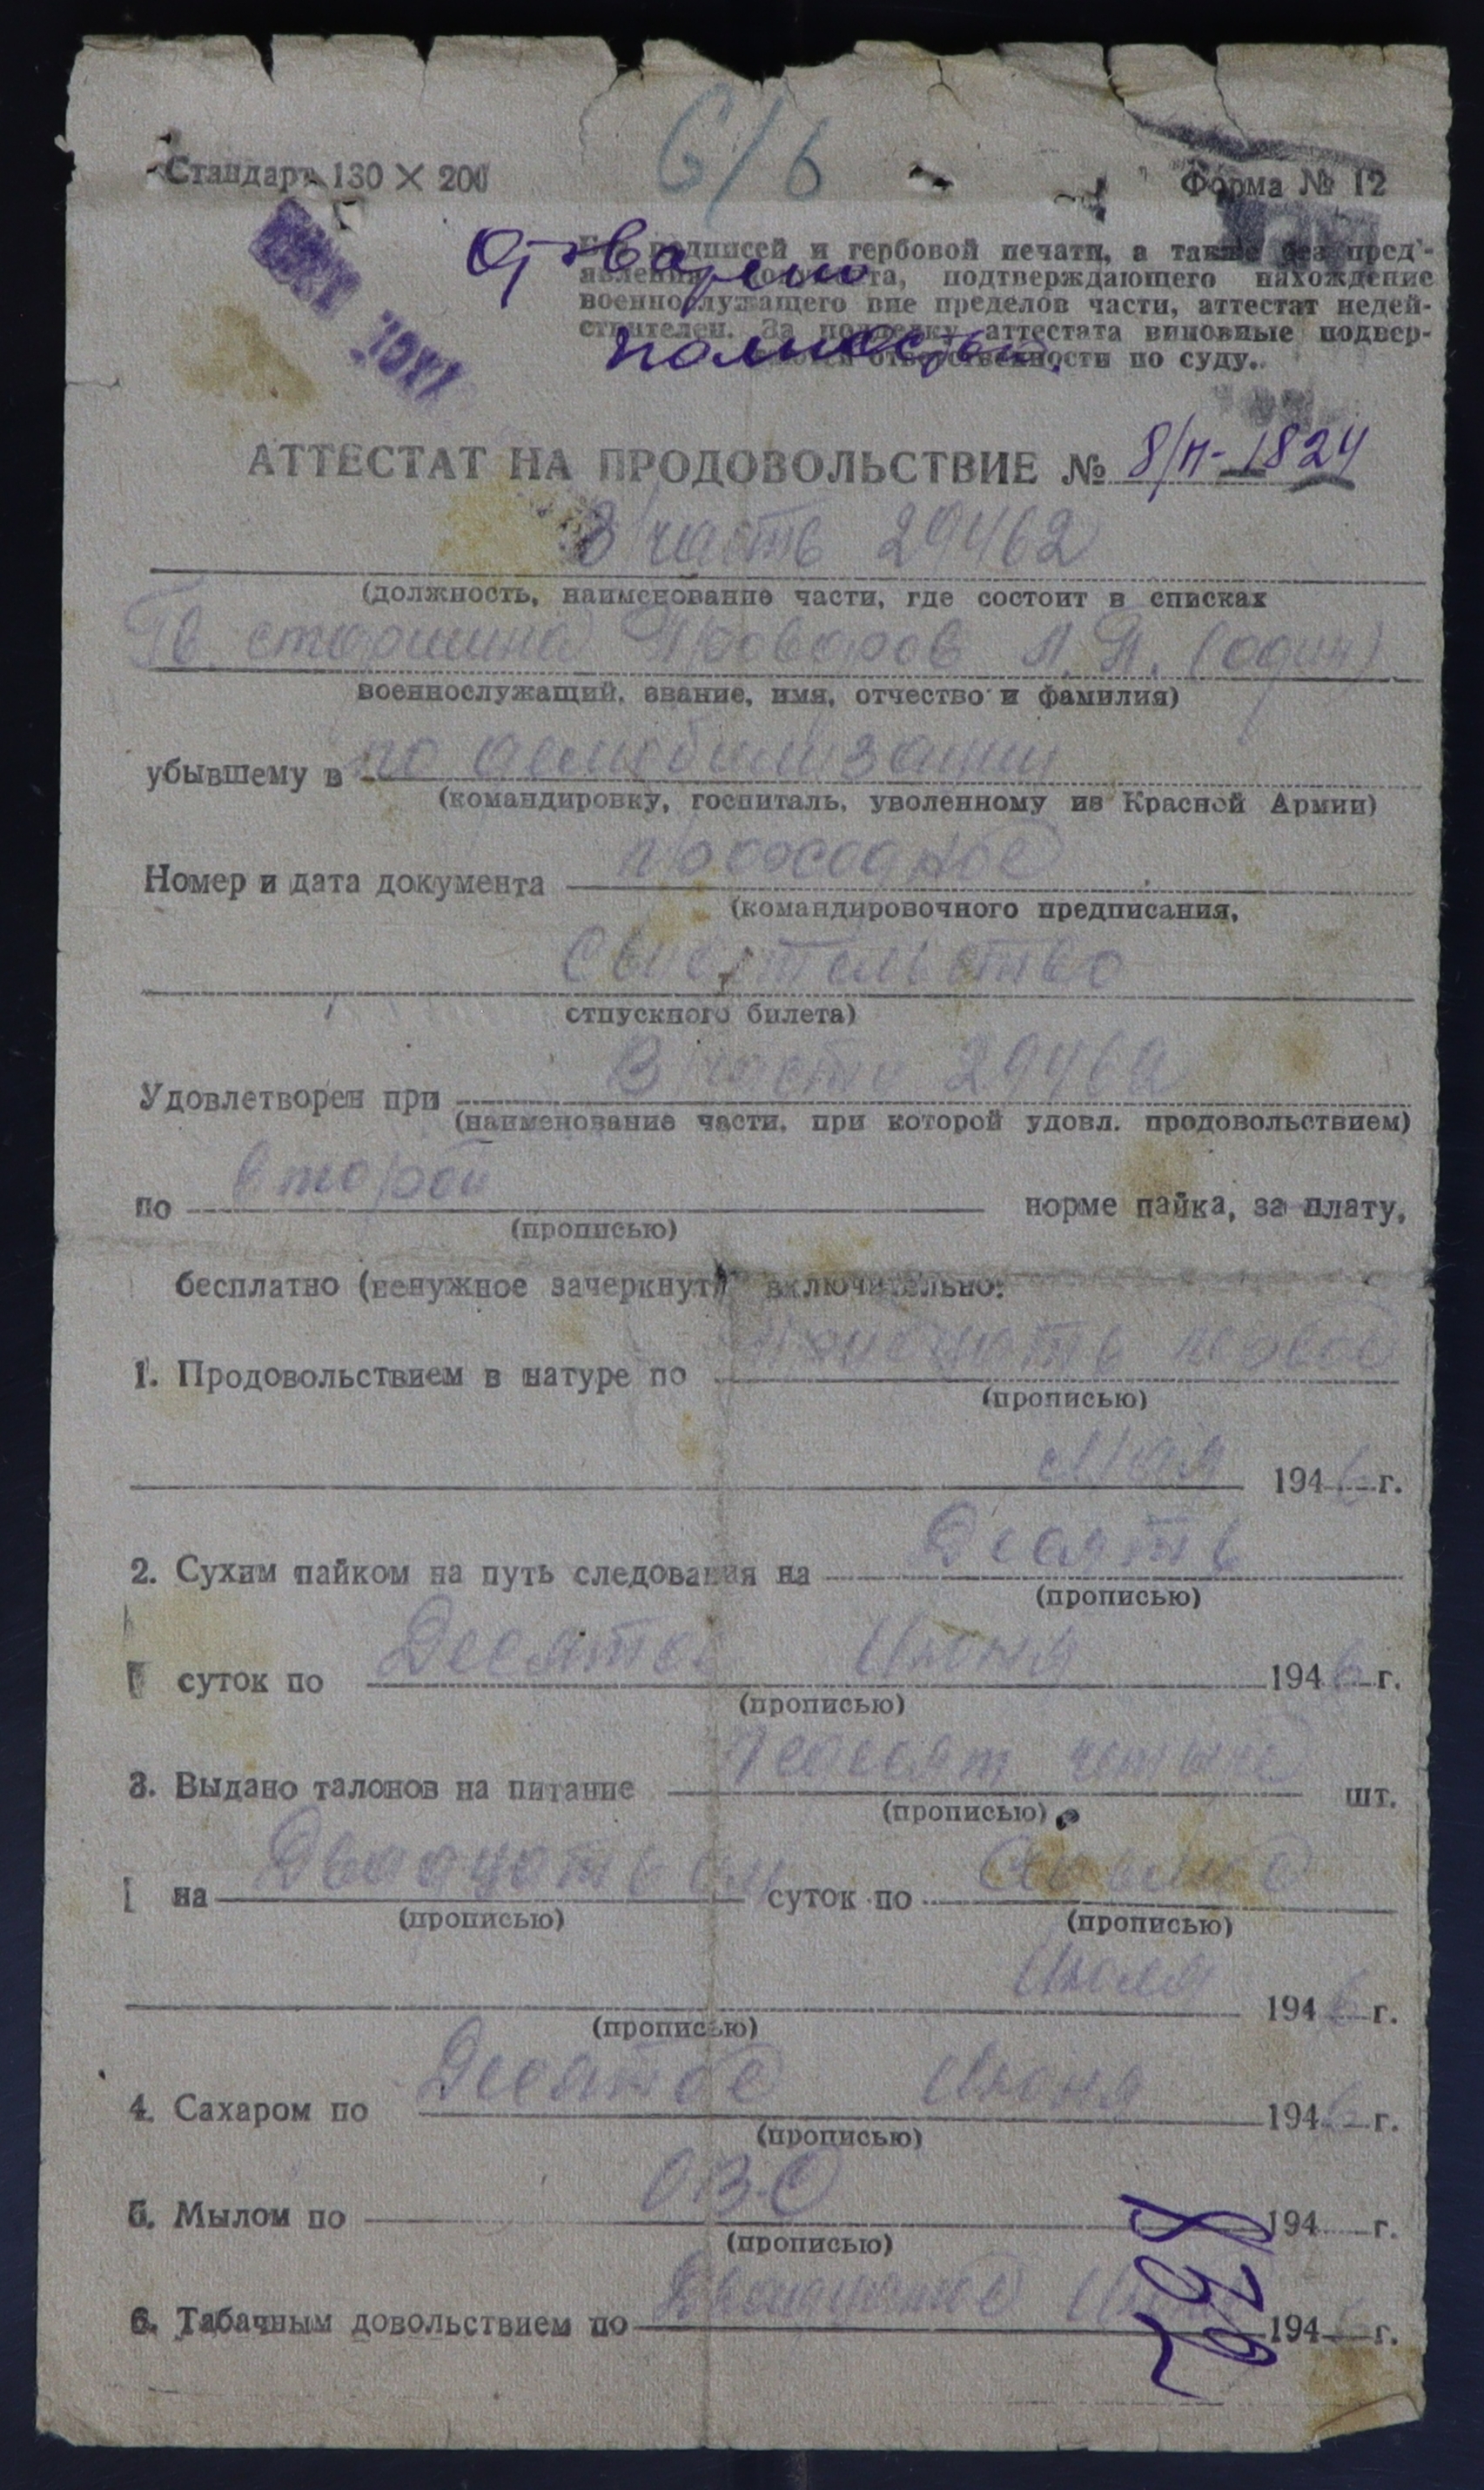 6/6
Стандарт 130 × 200
Форма № 12
Без подписей и гербовой печати, а также без пред'-
явления документа, подтверждающего нахождение
военнослужащего вне пределов части, аттестат недей-
ствителен. За подделку аттестата виновные подвер-
гаются ответственности по суду.
Отоварено
полностью.
АТТЕСТАТ НА ПРОДОВОЛЬСТВИЕ № 8/п-1824
В/часть 29462
(должность, наименование части, где состоит в списках
Гв. старшина Проворов А. П. (один)
военнослужащий, звание, имя, отчество и фамилия)
убывшему в по демобилизации
(командировку, госпиталь, уволенному из Красной Армии)
Номер и дата документа проходное
(командировочного предписания,
свидетельство
отпускного билета)
Удовлетворен при В/части 29462
(наименование части, при которой удовл. продовольствием)
по второй норме пайка, за плату,
(прописью)
бесплатно (ненужное зачеркнуть) включительно:
1. Продовольствием в натуре по тридцать первое
(прописью)
мая 1946 г.
2. Сухим пайком на путь следования на Десять
(прописью)
суток по Десятое Июня 1946 г.
(прописью)
3. Выдано талонов на питание четыре шт.
(прописью)
на Двадцать суток по
(прописью) (прописью)
Июля 1946 г.
(прописью)
4. Сахаром по Десятое Июня 1946 г.
(прописью)
5. Мылом по 194 г.
(прописью)
6. Табачным довольствием по 194 г.